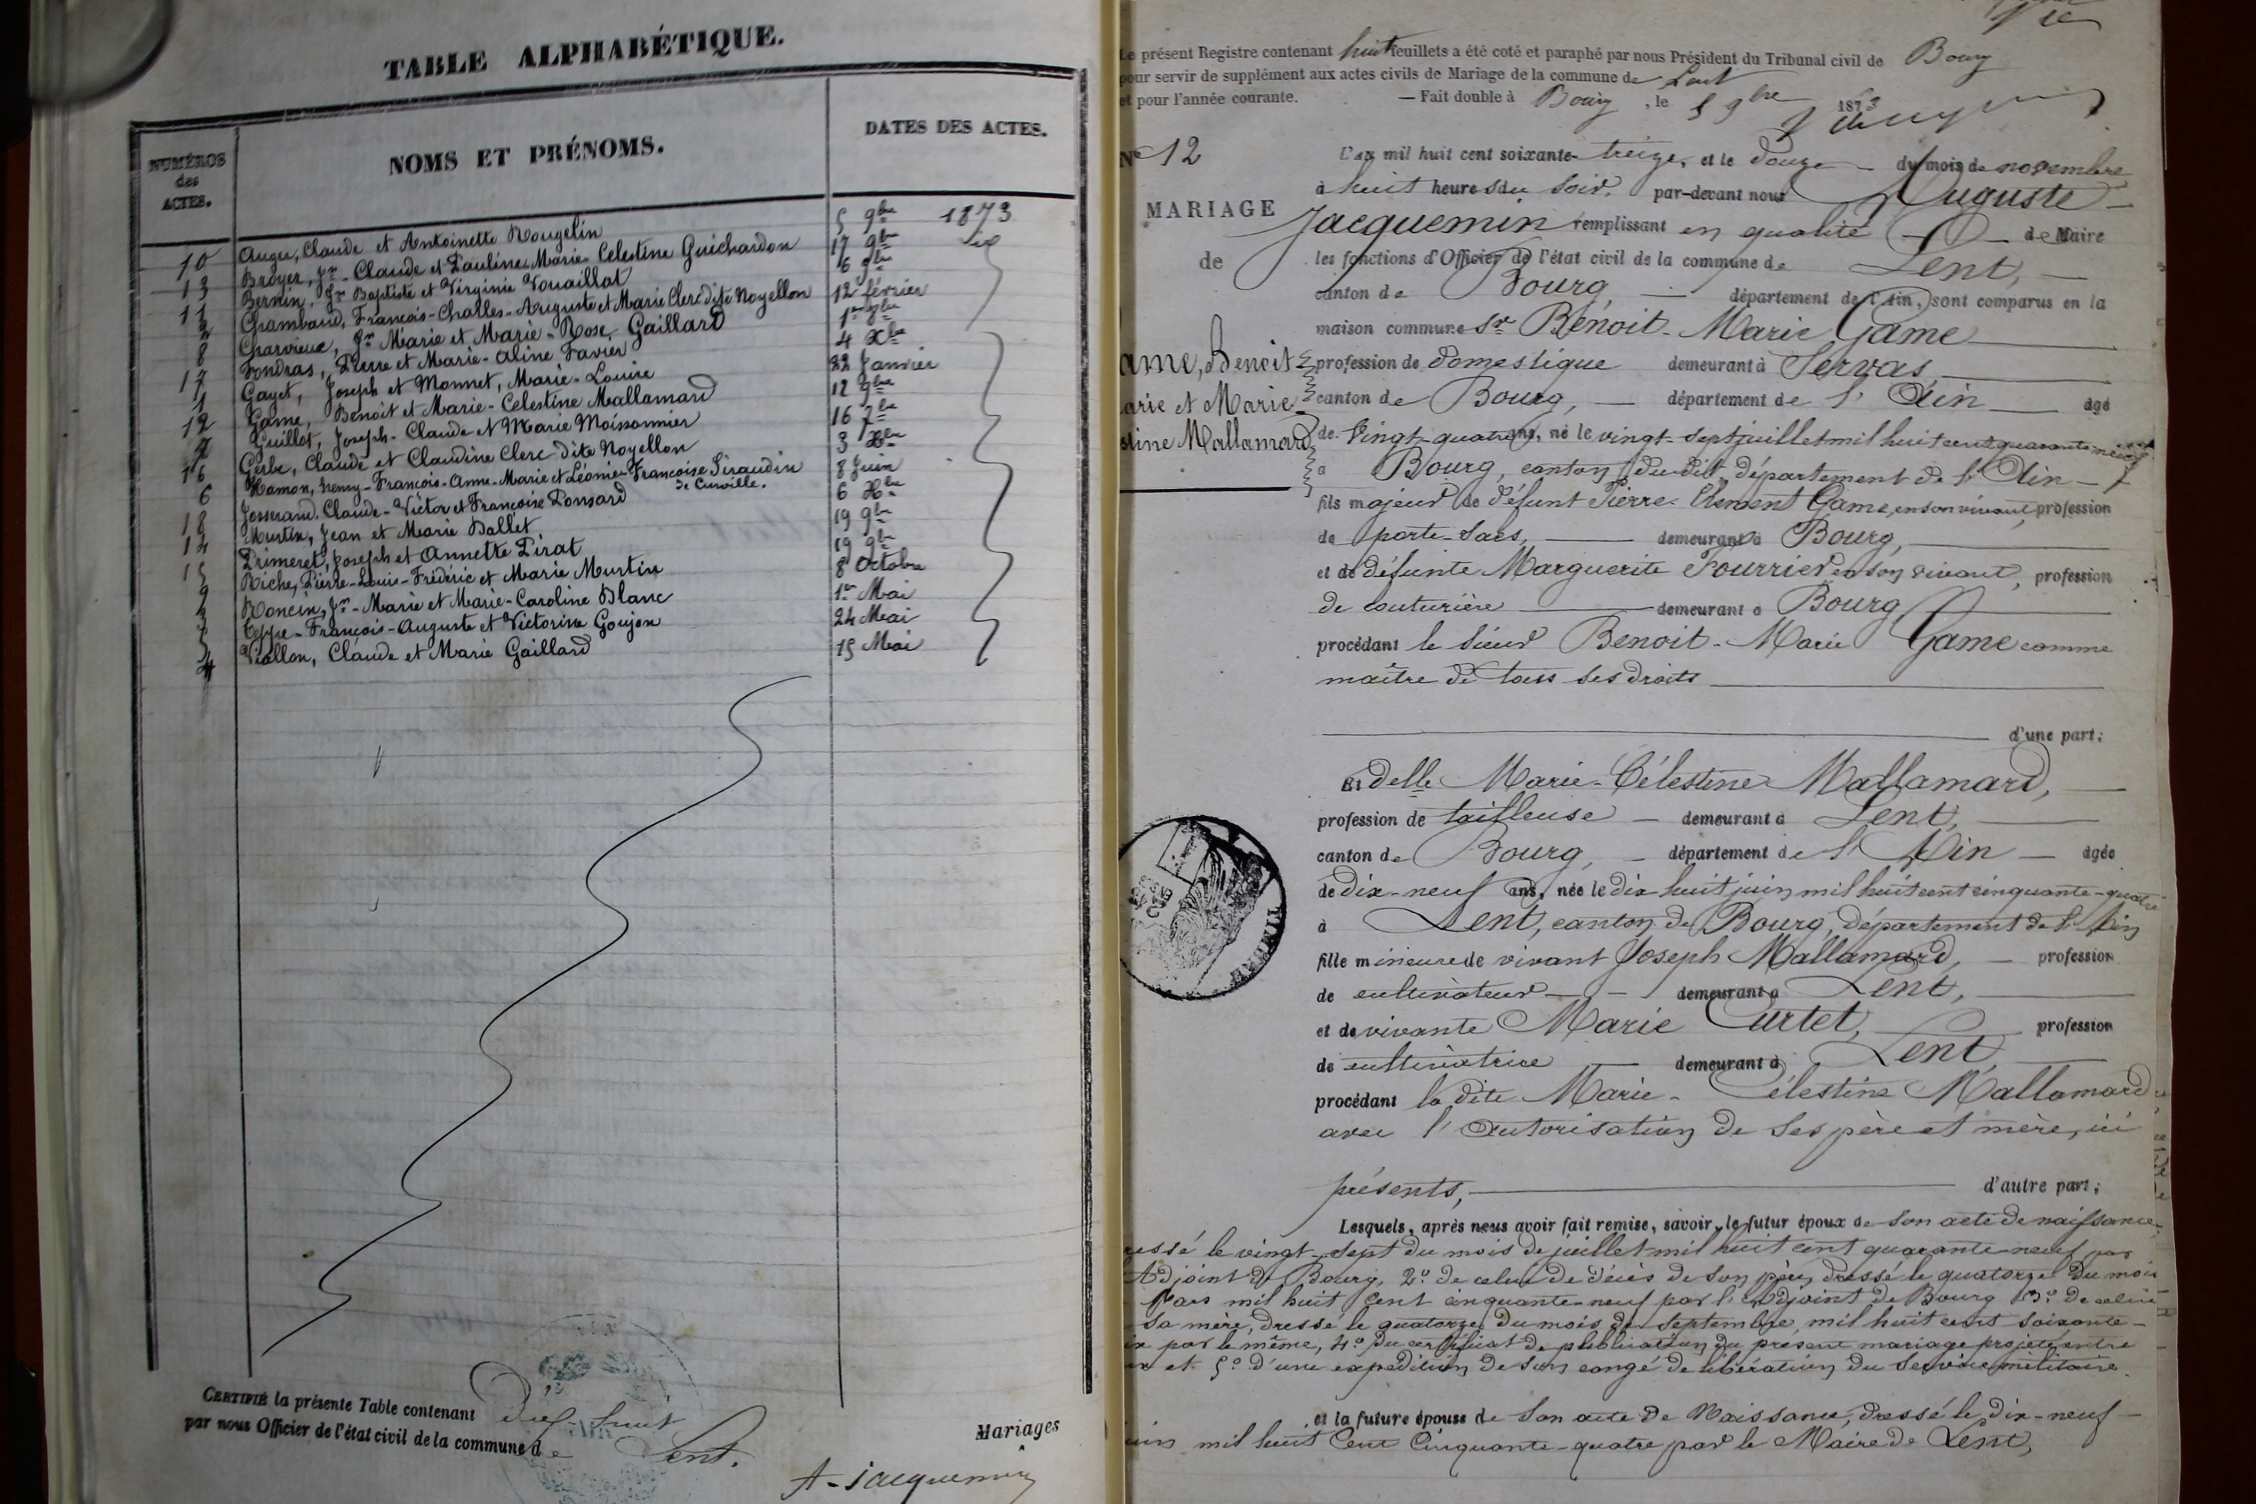 TABLE ALPHABÉTIQUE.
NUMÉROS des ACTES.
NOMS ET PRÉNOMS.
DATES DES ACTES.
10 Auger, Claude et Antoinette Rougelin 5 9bre 1873
13 Broyer, Jn-Claude et Pauline Marie-Celestine Guichardon 17 9bre
11 Bernin, Jn Baptiste et Virginie Vouaillat 6 9bre
2 Chambaud, François-Challes-Auguste et Marie Clerc dite Noyellon 12 février
8 Charvieux, Jn Marie et Marie-Rose Gaillard
17 Fondras, Pierre et Marie-Aline Favier 4 Xbre
1 Gayet, Joseph et Monnet, Marie-Louise 22 Janvier
12 Game, Benoît et Marie-Celestine Mallamard 12 9bre
7 Guillot, Joseph-Claude et Marie Moissonnier 16 7bre
16 Gerbe, Claude et Claudine Clerc dite Noyellon 3 Xbre
6 Hamon, Henry-François-Anne-Marie et Léonie-Françoise Siraudin de Curville. 8 Juin
18 Josserand, Claude-Victor et Françoise Ponsard 6 Xbre
14 Murtin, Jean et Marie Ballet 19 9bre
15 Primeret, Joseph et Annette Pirat 19 9bre
9 Riche, Pierre-Louis-Frédéric et Marie Murtin 8 Octobre
3 Roncin, Jn-Marie et Marie-Caroline Blanc 1er Mai
5 Teppe-François-Auguste et Victorine Goujon 24 Mai
4 Viallon, Claude et Marie Gaillard 15 Mai
CERTIFIÉ la présente Table contenant Dix-huit Mariages
par nous Officier de l'état civil de la commune de Lent.
A. Jacquemin
Le présent Registre contenant huit feuillets a été coté et paraphé par nous Président du Tribunal civil de Bourg
pour servir de supplément aux actes civils de Mariage de la commune de Lent
et pour l'année courante. — Fait double à Bourg, le 5 9bre 1873
No 12
MARIAGE
de
Game, Benoit
Marie et Marie
Mallamard
L'an mil huit cent soixante-treize, et le douze du mois de novembre
à huit heures du soir, par-devant nous Auguste
Jacquemin remplissant en qualité de Maire
les fonctions d'Officier de l'état civil de la commune de Lent,
canton de Bourg, département de l'Ain, sont comparus en la
maison commune Sr Benoit-Marie Game
profession de domestique demeurant à Servas
canton de Bourg, département de l'Ain âgé
de vingt-quatre ans, né le vingt-sept juillet mil huit cent quarante-neuf
à Bourg, canton du dit, département de l'Ain
fils majeur de défunt Pierre-Clement Game, en son vivant, profession
de porte-sacs, demeurant à Bourg,
et de défunte Marguerite Fourrier en son vivant, profession
de couturière demeurant à Bourg
procédant le sieur Benoit-Marie Game comme
maître de tous ses droits
d'une part;
Et delle Marie-Célestine Mallamard,
profession de tailleuse demeurant à Lent,
canton de Bourg, département de l'Ain âgée
de dix-neuf ans, née le dix huit juin mil huit cent cinquante-quatre
à Lent, canton de Bourg, département de l'Ain
fille mineure de vivant Joseph Mallamard, profession
de cultivateur demeurant à Lent,
et de vivante Marie Curtet, profession
de cultivatrice demeurant à Lent,
procédant la dite Marie-Célestine Mallamard
avec l'autorisation de ses père et mère, ici
présents, d'autre part;
Lesquels, après nous avoir fait remise, savoir, le futur époux de son acte de naissance,
dressé le vingt-sept du mois de juillet mil huit cent quarante-neuf par
l'Adjoint de Bourg, 2o de celui de décès de son père, dressé le quatorze du mois
Mars mil huit cent cinquante-neuf par l'adjoint de Bourg 3o de celui
sa mère, dressé le quatorze du mois de Septembre mil huit cent soixante-
par le même, 4o du certificat de publication du présent mariage projeté entre
et 5o d'une expédition de son congé de libération du service militaire.
et la future épouse de son acte de Naissance, dressé le dix-neuf
juin mil huit cent cinquante-quatre par le Maire de Lent,
TIMBRE